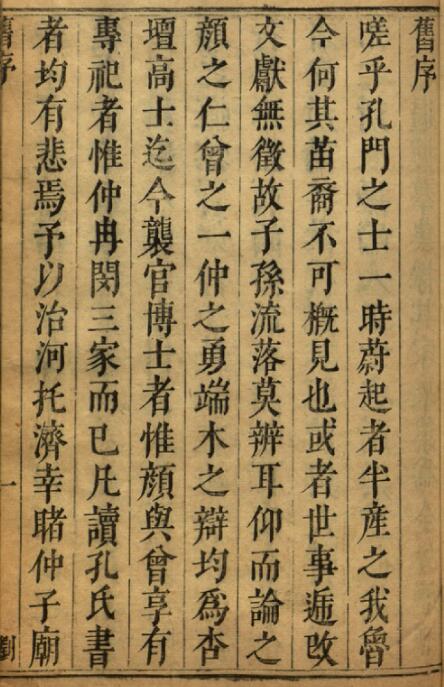 舊序
嗟乎孔門之士一時蔚起者半產之我魯
今何其苗裔不可槪見也或者世事遞改
文獻無徵故子孫流落莫辨耳仰而論之
顔之仁曾之一仲之勇端木之辯均爲杏
壇高士迄今襲官博士者惟顔與曾享有
專祀者惟仲冉閔三家而已凡讀孔氏書
者均有悲焉予以治河托濟幸睹仲子廟
舊序
一
劉